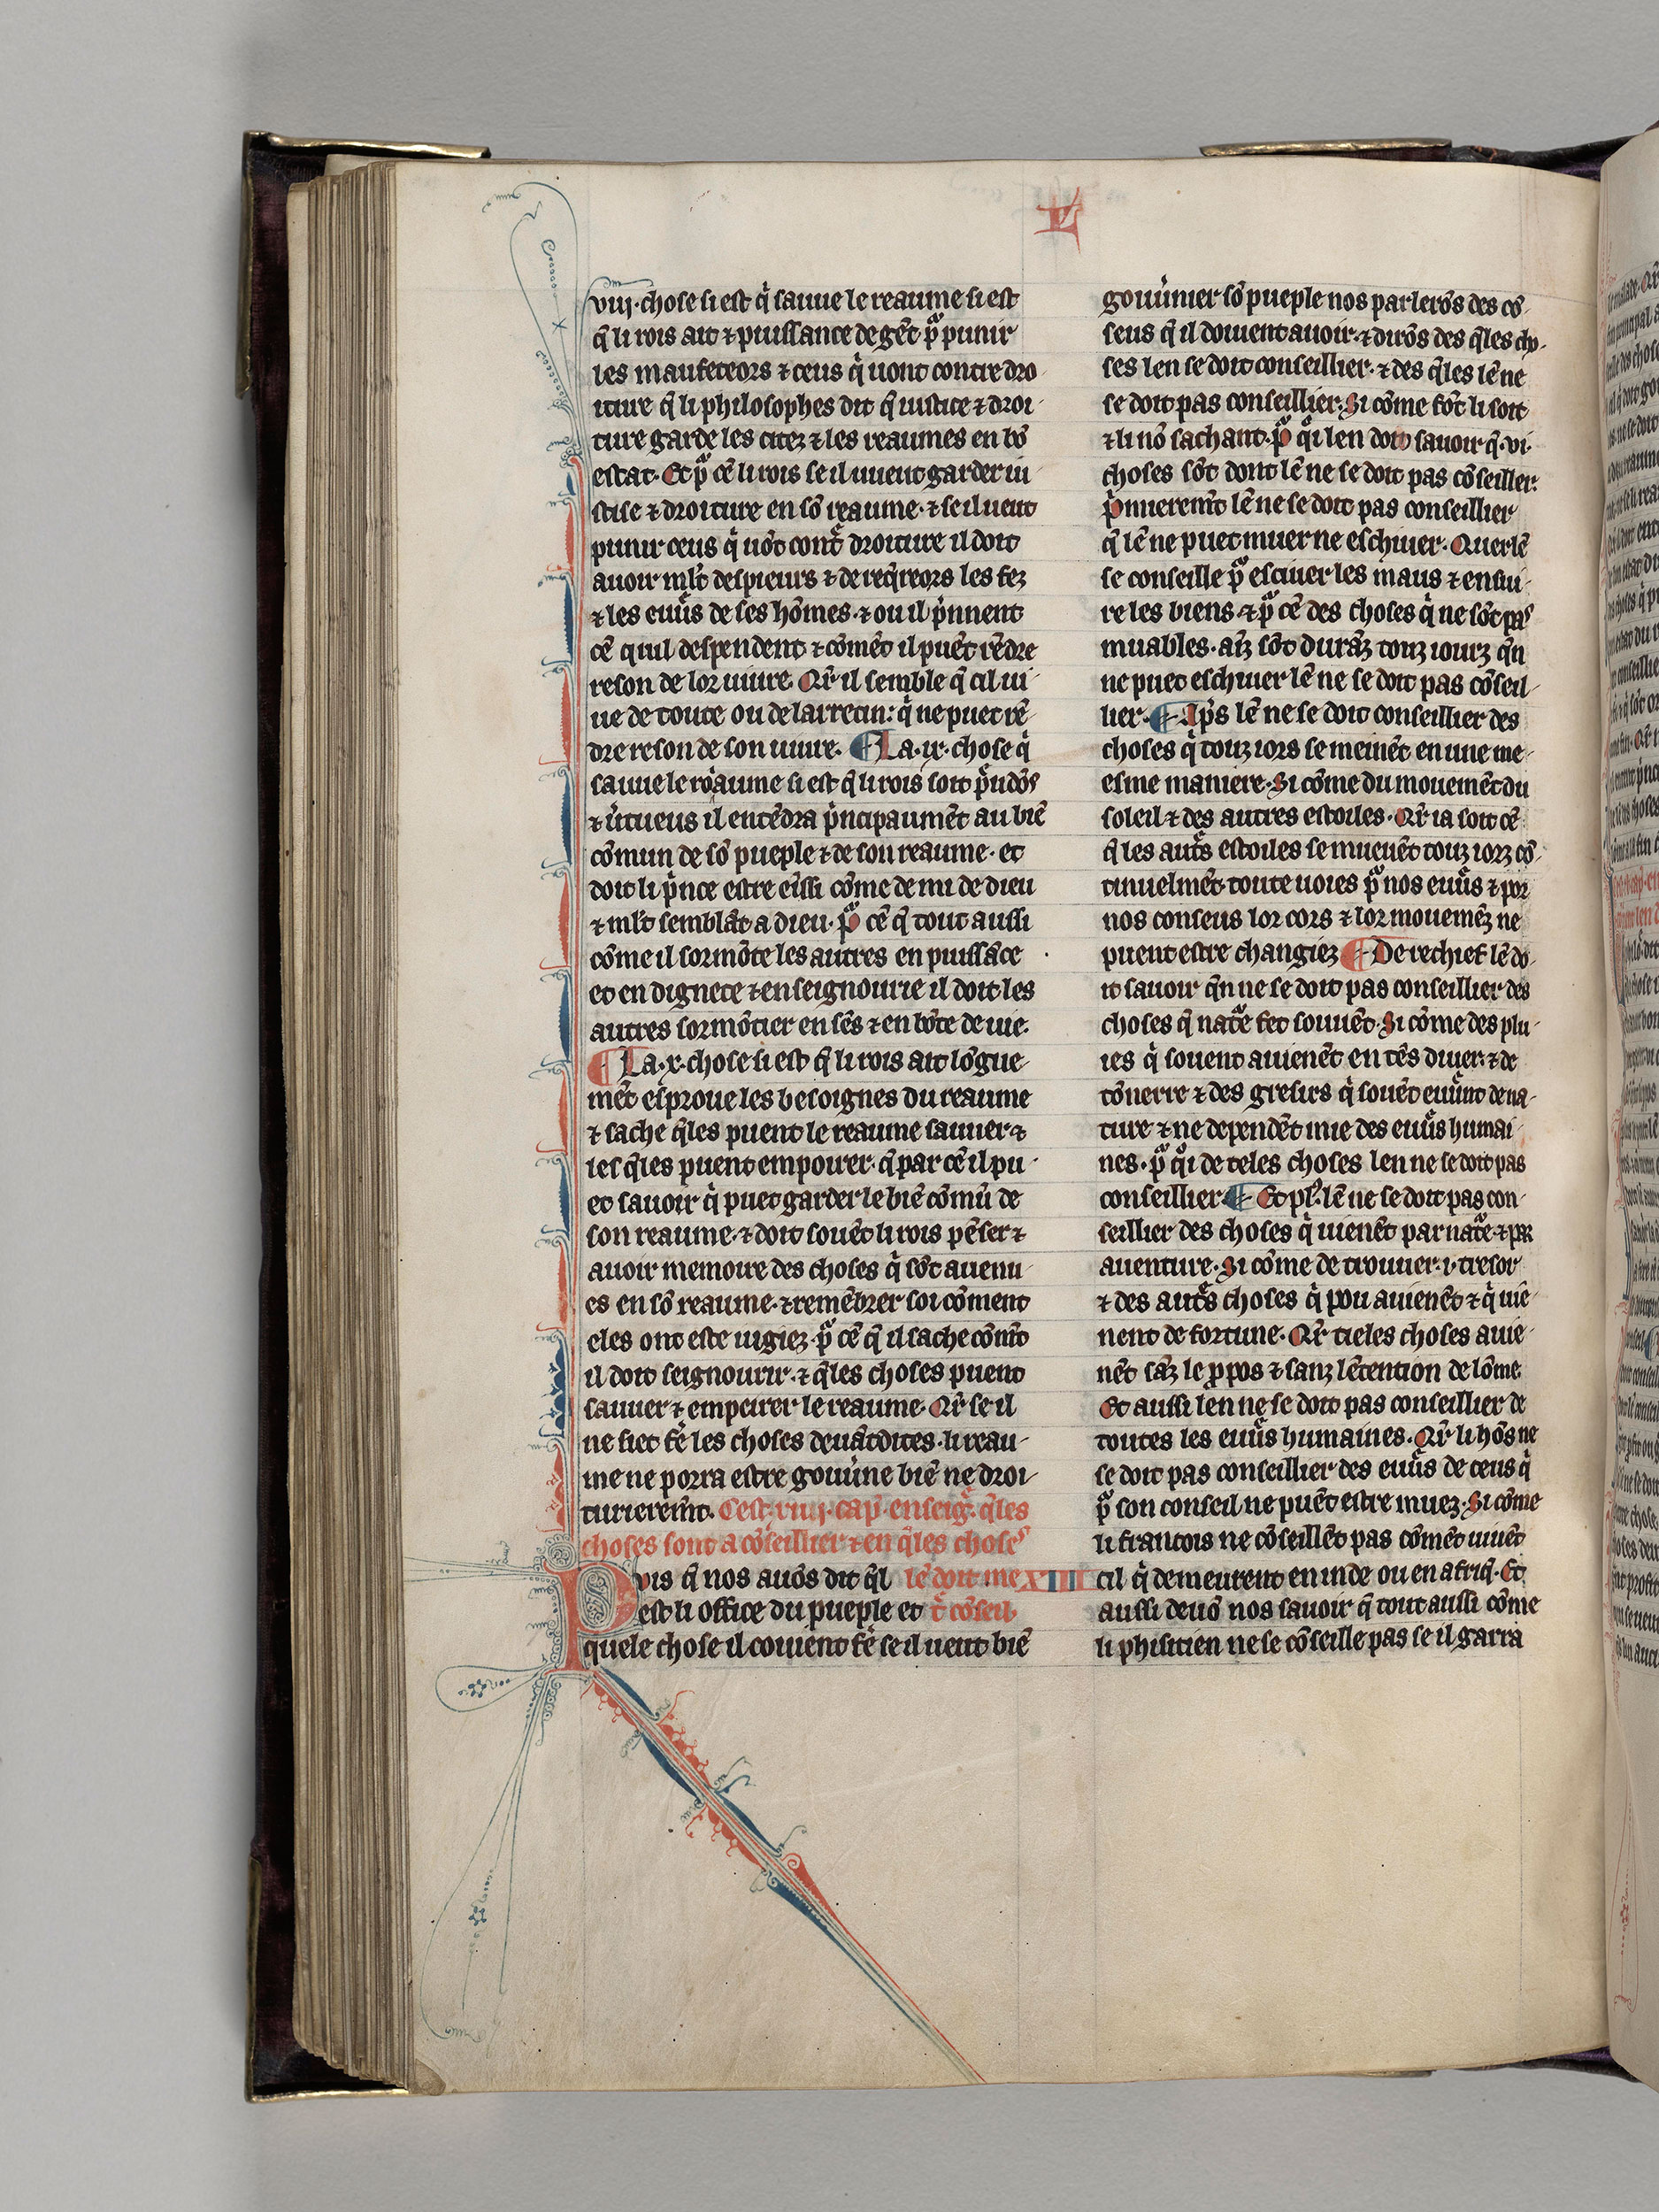 L
viij. chose si est q̇ sauue le reaume si est
q̄ li rois ait ⁊ puissance de gēt pᷓ punir
les maufeteors ⁊ ceus q̇ uont contre dro
iture q̄ li philosophes dit q̄ iustice ⁊ droi
ture garde les citez ⁊ les reaumes en bō
estat. Et pᷓ cē li rois se il uueut garder iu
stise ⁊ droiture en sō reaume. ⁊ se il ueut
punir ceus q̇ uōt cont̄ droiture il doit
auoir ml̄t despieurs ⁊ de reqreors les fez
⁊ les euūs de ses hōmes. ⁊ ou il ṗnnent
cē quil despendent ⁊ cōmēt il puēt rēdre
reson de lor uiure. Qr̄ il semble q̄ cil ui
ue de toute ou de larrecin: q̇ ne puet rē
dre reson de son uiure. ¶ La .ix. chose q̇
sauue le roaume si est q̄ li rois soit pᷓudōs
⁊ u̇tueus il entēdra ṗncipaumēt au biē
cōmun de sō pueple ⁊ de son reaume. et
doit li ṗnce estre eissi cōme demi dieu
⁊ ml̄t semblāt a dieu. pᷓ cē q̄ tout aussi
cōme il sormōte les autres en puissāce
et en dignete ⁊ en seignourie il doit les
autres sormōtier en sēs ⁊ en bōte de uie.
¶ La .x. chose si est q̄ li rois ait lōgue
mēt esproue les besoignes du reaume
⁊ sache q̄les puent le reaume sauuer ⁊
les q̄les puent empoirer. q̄ par cē il pu
et sauoir q̇ puet garder le biē cōmū de
son reaume. ⁊ doit souēt li rois pēser ⁊
auoir memoire des choses q̇ sōt auenu
es en sō reaume. ⁊ remēbrer soi cōment
eles ont este iugiez. pᷓ cē q̄ il sache cōmt̄
il doit seignourir. ⁊ q̄les choses puent
sauuer ⁊ empeirer le reaume. Qr̄ se il
ne siet fē les choses deuātdites. li reau
me ne porra estre gouu̇ne biē ne droi
turierem̄t. Cest. viij. cap̄. enseig̃. q̄les
choses sont a cōseillier ⁊ en q̄les choses
Puis q̄ nos auōs dit q̄l lē doit me XIII
est li office du pueple et t̄ cōseil.
quele chose il couient fē se il ueut biē
gouu̇nier sō pueple nos parlerōs des cō
seus q̄ il doiuent auoir. ⁊ dirōs des q̄les cho
ses len se doit conseillier. ⁊ des q̄les lē ne
se doit pas conseillier. Si cōme fōt li soit
⁊ li nō sachant. pᷓ q̇i len doit sauoir q̄ .vi.
choses sōt dont lē ne se doit pas cōseiller.
ṗmierem̄t lē ne se doit pas conseillier
q̄ lē ne puet muer ne eschiuer. Quer lē
se conseille pᷓ esciuer les maus ⁊ ensui
re les biens. ⁊ pᷓ cē des choses q̇ ne sōt pas
muables. aīz sōt durāz touz iourz q̄n
ne puet eschiuer lē ne se doit pas cōseil
lier. ¶ Ap̄s lē ne se doit conseillier des
choses q̇ touz iors se meinēt en une me
esme maniere. Si cōme du mouemēt du
soleil ⁊ des autres estoiles. Qr̄ ia soit cē
q̄ les autᷓs estoiles se mueuēt touz iorz cō
tinuelmēt. toute uoies pᷓ nos euūs ⁊ por
nos conseus lor cors ⁊ lor mouemēz ne
puent estre changiez ¶ De rechief lē do
it sauoir q̄n ne se doit pas conseillier des
choses q̄ natᷓe fet souuēt. Si cōme des plu
ies q̇ souent auienēt en tēs diuer. ⁊ de
tōnerre ⁊ des gresirs q̇ souēt euūnt de na
ture ⁊ ne dependēt mie des euūs humai
nes. pᷓ q̇i de teles choses len ne se doit pas
conseillier ¶ Et pl9 lē ne se doit pas con
seillier des choses q̇ uienēt par natᷓe. ⁊ par
auenture. Si cōme de trouuer .i. tresor
⁊ des autᷓs choses q̇ pou auienēt ⁊ q̇ uiē
nent de fortune. Qr̄ tieles choses auie
nēt sāz le ꝓpos ⁊ sanz lētention de lōme.
Et aussi len ne se doit pas conseillier de
toutes les euūs humaines. Qr̄ li hōs ne
se doit pas conseillier des euūs de ceus q̇
pᷓ son conseil ne puēt estre muez. Si cōme
li francois ne cōseillēt pas cōmēt uiuēt
cil q̇ demeurent en inde ou en afriq̄. Et
aussi deuō nos sauoir q̄ tout aussi cōme
li phisitien ne se cōseille pas se il garra